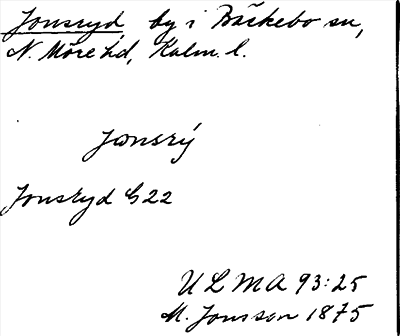 Jonsryd by i Bäckebo sn,
N. Möre hd, Kalm. l.
Jonsrý
Jonsryd G 22
ULMA 93:25
M. Jonsson 1875